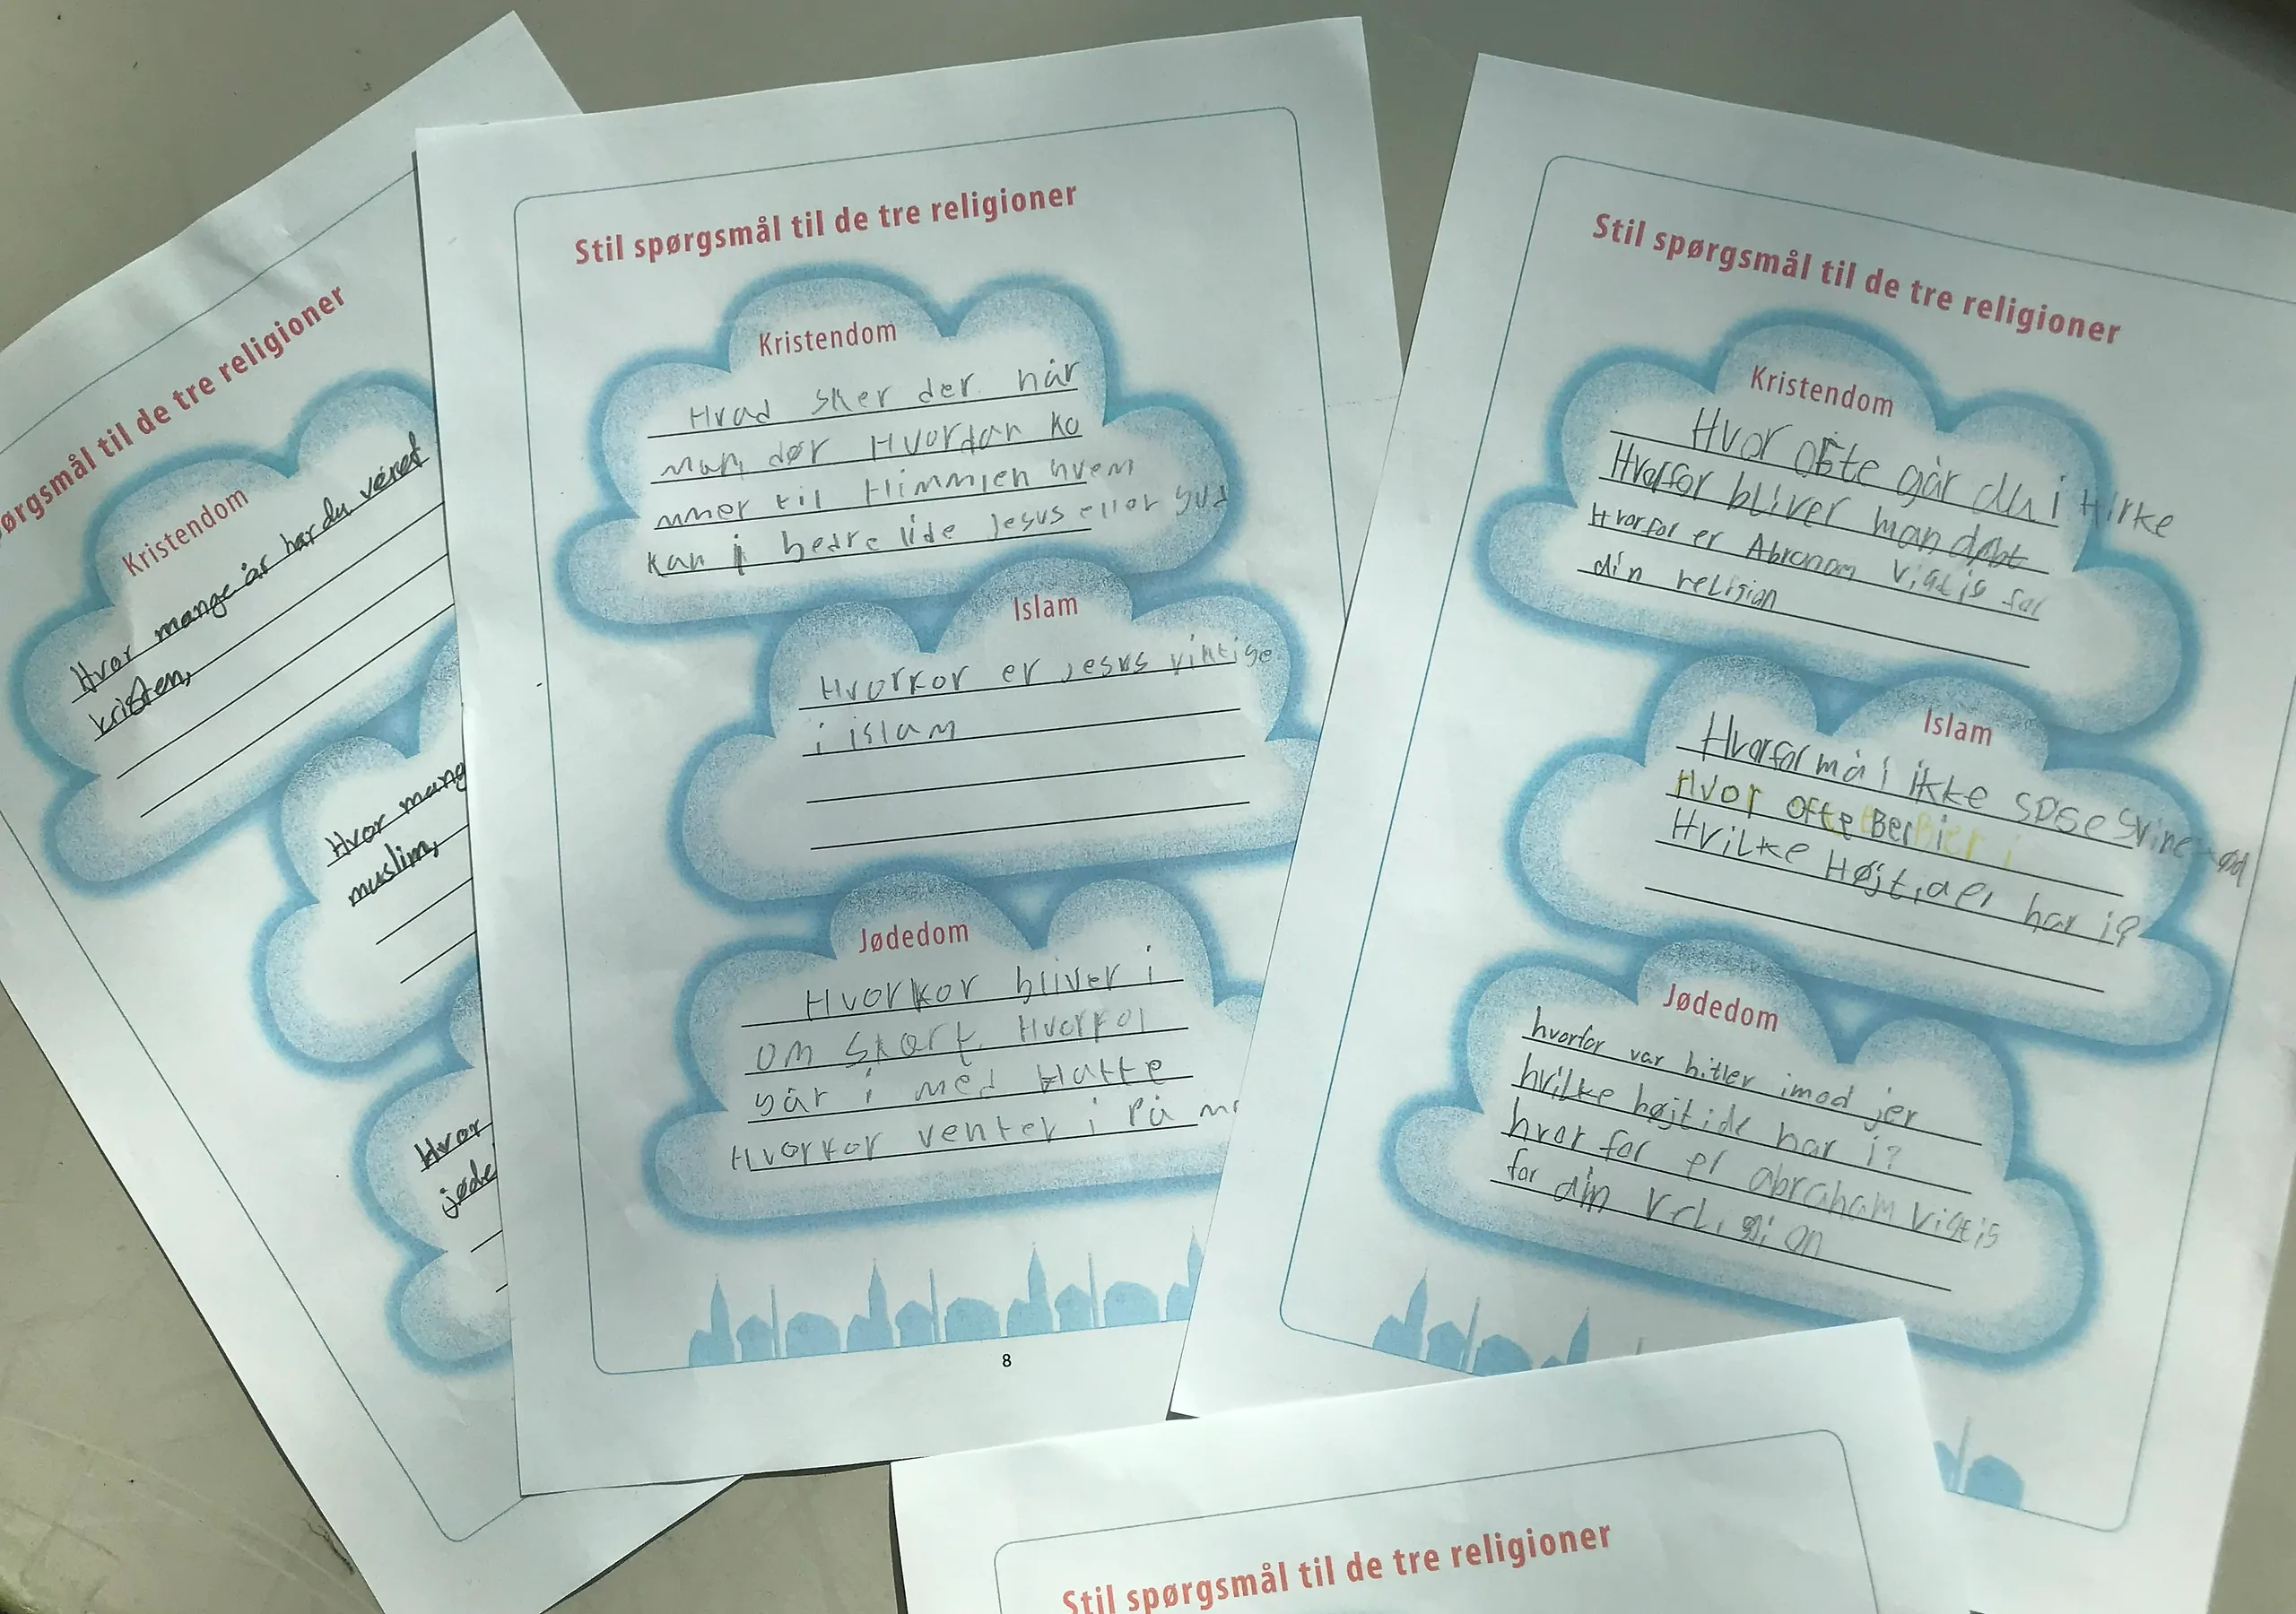 ørgsmål til de tre religioner
Kristendom
Hvor mange år har du været
kristen,
Hvor mang
muslim,
Hvor
jøde
Stil spørgsmål til de tre religioner
Kristendom
Hvad sker der når
man dør Hvordan ko
mmer til Himmlen hvem
kan i bedre lide Jesus eller gud
Islam
Hvorkor er Jesus viktige
i islam
Jødedom
Hvorkor bliver i
om skort Hvorfor
går i med Hatte
Hvorkor venter i På
8
Stil spørgsmål til de tre religioner
Kristendom
Hvor ofte går du i Kirke
Hvorfor bliver man døbt
Hvorfor er Abraham Vigtig for
din religion
Islam
Hvorfor må i ikke spise svine
Hvor ofte Ber i
Hvilke Højtider har i?
Jødedom
hvorfor var hitler imod jer
hvilke højtide har i?
hvor for er abraham Vigtig
for din religion
Stil spørgsmål til de tre religioner